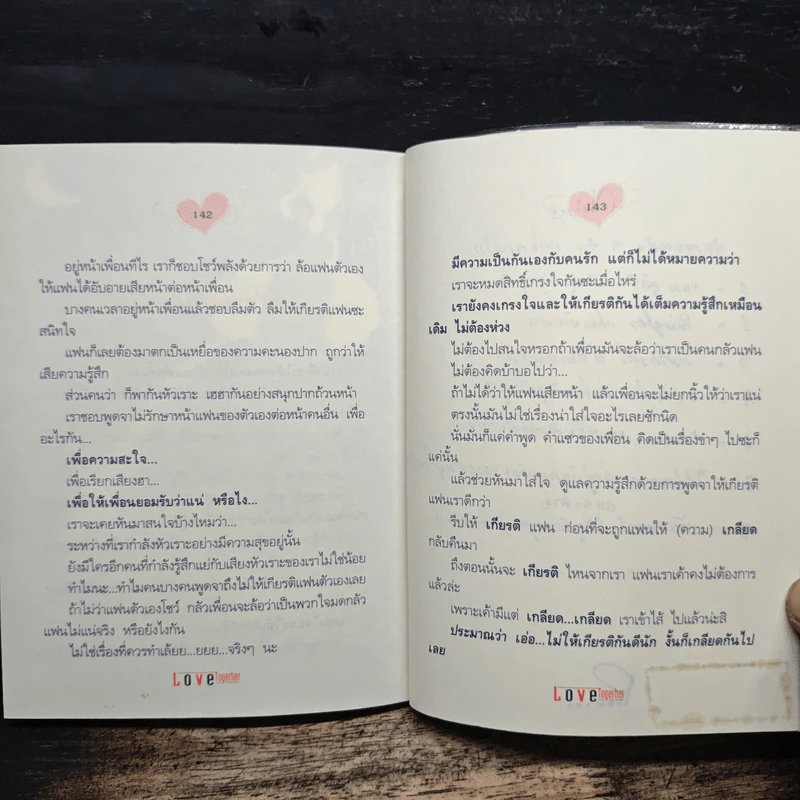 142
อยู่หน้าเพื่อนทีไร เราก็ชอบโชว์พลังด้วยการว่า ล้อแฟนตัวเอง
ให้แฟนได้อับอายเสียหน้าต่อหน้าเพื่อน
บางคนเวลาอยู่หน้าเพื่อนแล้วชอบลืมตัว ลืมให้เกียรติแฟนซะ
สนิทใจ
แฟนก็เลยต้องมาตกเป็นเหยื่อของความคะนองปาก ถูกว่าให้
เสียความรู้สึก
ส่วนคนว่า ก็พากันหัวเราะ เฮฮากันอย่างสนุกปากถ้วนหน้า
เราชอบพูดจาไม่รักษาหน้าแฟนของตัวเองต่อหน้าคนอื่น เพื่อ
อะไรกัน...
เพื่อความสะใจ...
เพื่อเรียกเสียงฮา...
เพื่อให้เพื่อนยอมรับว่าแน่ หรือไง...
เราจะเคยหันมาสนใจบ้างไหมว่า...
ระหว่างที่เรากำลังหัวเราะอย่างมีความสุขอยู่นั้น
ยังมีใครอีกคนที่กำลังรู้สึกแย่กับเสียงหัวเราะของเราไม่ใช่น้อย
ทำไมนะ...ทำไมคนบางคนพูดจาถึงไม่ให้เกียรติแฟนตัวเองเลย
ถ้าไม่ว่าแฟนตัวเองโชว์ กลัวเพื่อนจะล้อว่าเป็นพวกใจมดกลัว
แฟนไม่แน่จริง หรือยังไงกัน
ไม่ใช่เรื่องที่ควรทำเล้ยย...ยยย...จริงๆ นะ
Love Together
143
มีความเป็นกันเองกับคนรัก แต่ก็ไม่ได้หมายความว่า
เราจะหมดสิทธิ์เกรงใจกันซะเมื่อไหร่
เรายังคงเกรงใจและให้เกียรติกันได้เต็มความรู้สึกเหมือน
เดิม ไม่ต้องห่วง
ไม่ต้องไปสนใจหรอกถ้าเพื่อนมันจะล้อว่าเราเป็นคนกลัวแฟน
ไม่ต้องคิดบ้าบอไปว่า...
ถ้าไม่ได้ว่าให้แฟนเสียหน้า แล้วเพื่อนจะไม่ยกนิ้วให้ว่าเราแน่
ตรงนั้นมันไม่ใช่เรื่องน่าใส่ใจอะไรเลยซักนิด
นั่นมันก็แค่คำพูด คำแซวของเพื่อน คิดเป็นเรื่องขำๆ ไปซะก็
แค่นั้น
แล้วช่วยหันมาใส่ใจ ดูแลความรู้สึกด้วยการพูดจาให้เกียรติ
แฟนเราดีกว่า
รีบให้ เกียรติ แฟน ก่อนที่จะถูกแฟนให้ (ความ) เกลียด
กลับคืนมา
ถึงตอนนั้นจะ เกียรติ ไหนจากเรา แฟนเราเค้าคงไม่ต้องการ
แล้วล่ะ
เพราะเค้ามีแต่ เกลียด...เกลียด เราเข้าไส้ ไปแล้วน่ะสิ
ประมาณว่า เอ่อ...ไม่ให้เกียรติกันดีนัก งั้นก็เกลียดกันไป
เลย
Love Together